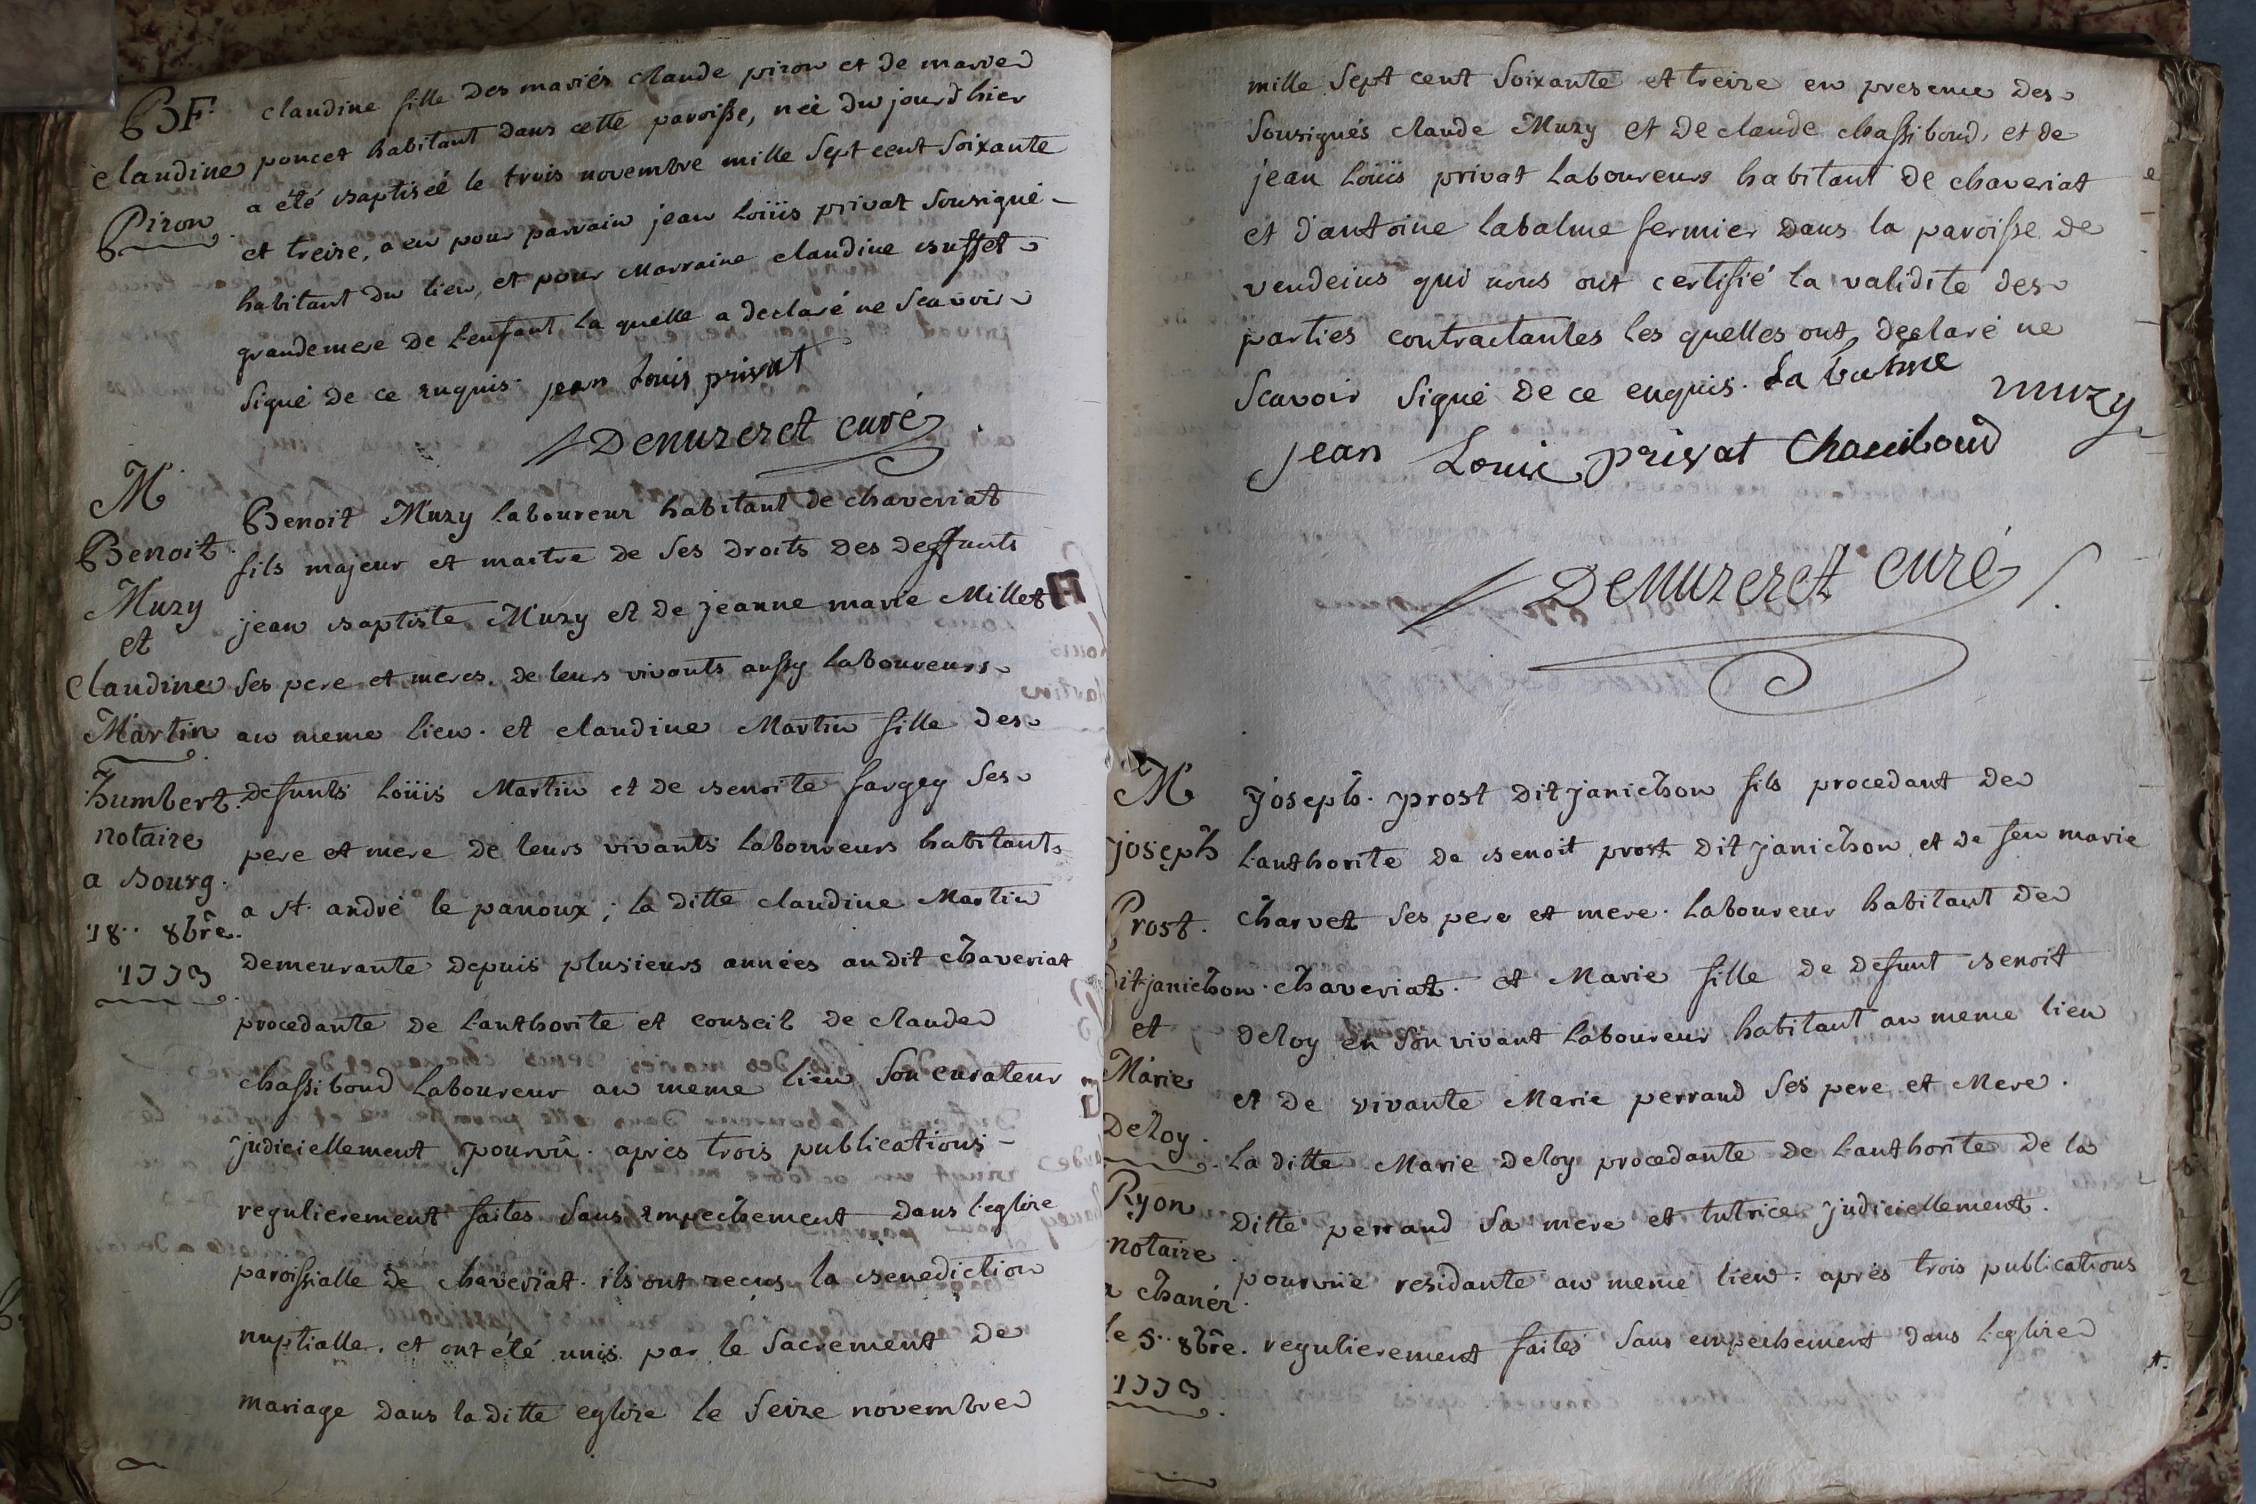 BF
claudine
Piron
claudine fille des mariés claude piron et de marie
poncet habitant dans cette paroisse, neé du jourdhier
a été baptiseé le trois novembre mille sept cent soixante
et treize, a eu pour parrain jean loüis privat sousigné
habitant du lieu, et pour marraine claudine buffet
grandemere de l'enfant la quelle a declaré ne scavoir
signé de ce enquis. jean Louis privat
Denuzeret curé
M
Benoit
Muzy
et
claudine
Martin
humbert
notaire
a bourg.
18.. 8bre.
1773
Benoit Muzy laboureur habitant de chaveriat
fils majeur et maitre de ses droits des deffunts
jean baptiste Muzy et de jeanne marie Millet
ses pere et meres. de leurs vivants aussy laboureurs
au meme lieu. et claudine Martin fille des
defunts loüis Martin et de benoite fargey ses
pere et mere de leurs vivants laboureurs habitants
a st. andré le panoux; la ditte claudine Martin
demeurante depuis plusieurs années audit chaveriat
procedante de l'authorite et conseil de claude
chassiboud laboureur au meme lieu son curateur
judiciellement pourvû. aprés trois publications
regulierement faites sans empechement dans l'eglise
paroissialle de chaveriat. ils ont reçus la benediction
nuptialle. et ont été unis par le sacrement de
mariage dans la ditte eglise le seize novembre
mille sept cent soixante et treize en presence des
sousignés claude Muzy et de claude chassiboud, et de
jean loüis privat laboureurs habitant de chaveriat
et d'antoine labalme fermier dans la paroisse de
vendeins qui nous ont certifié la validite des
parties contractantes les quelles ont declaré ne
scavoir signé de ce enquis. La balme
muzy
jean Louis privat Chassiboud
Denuzeret curé
M
joseph
Prost.
dit janichon
et
Marie
Deloy.
Ryon
notaire
a chanér.
le 5.. 8bre.
1773
joseph. prost dit janichon fils procedant de
l'authorite de benoit prost dit janichon et de feu marie
charvet ses pere et mere. laboureur habitant de
chaveriat. et Marie fille de defunt benoit
deloy en son vivant laboureur habitant au meme lieu
et de vivante Marie perraud ses pere et Mere.
la ditte Marie deloy procedante de l'authorite de la
ditte perraud sa mere et tutrice judiciellement.
pourvüe residante au meme lieu. aprés trois publications
regulierement faites sans empechement dans l'eglise